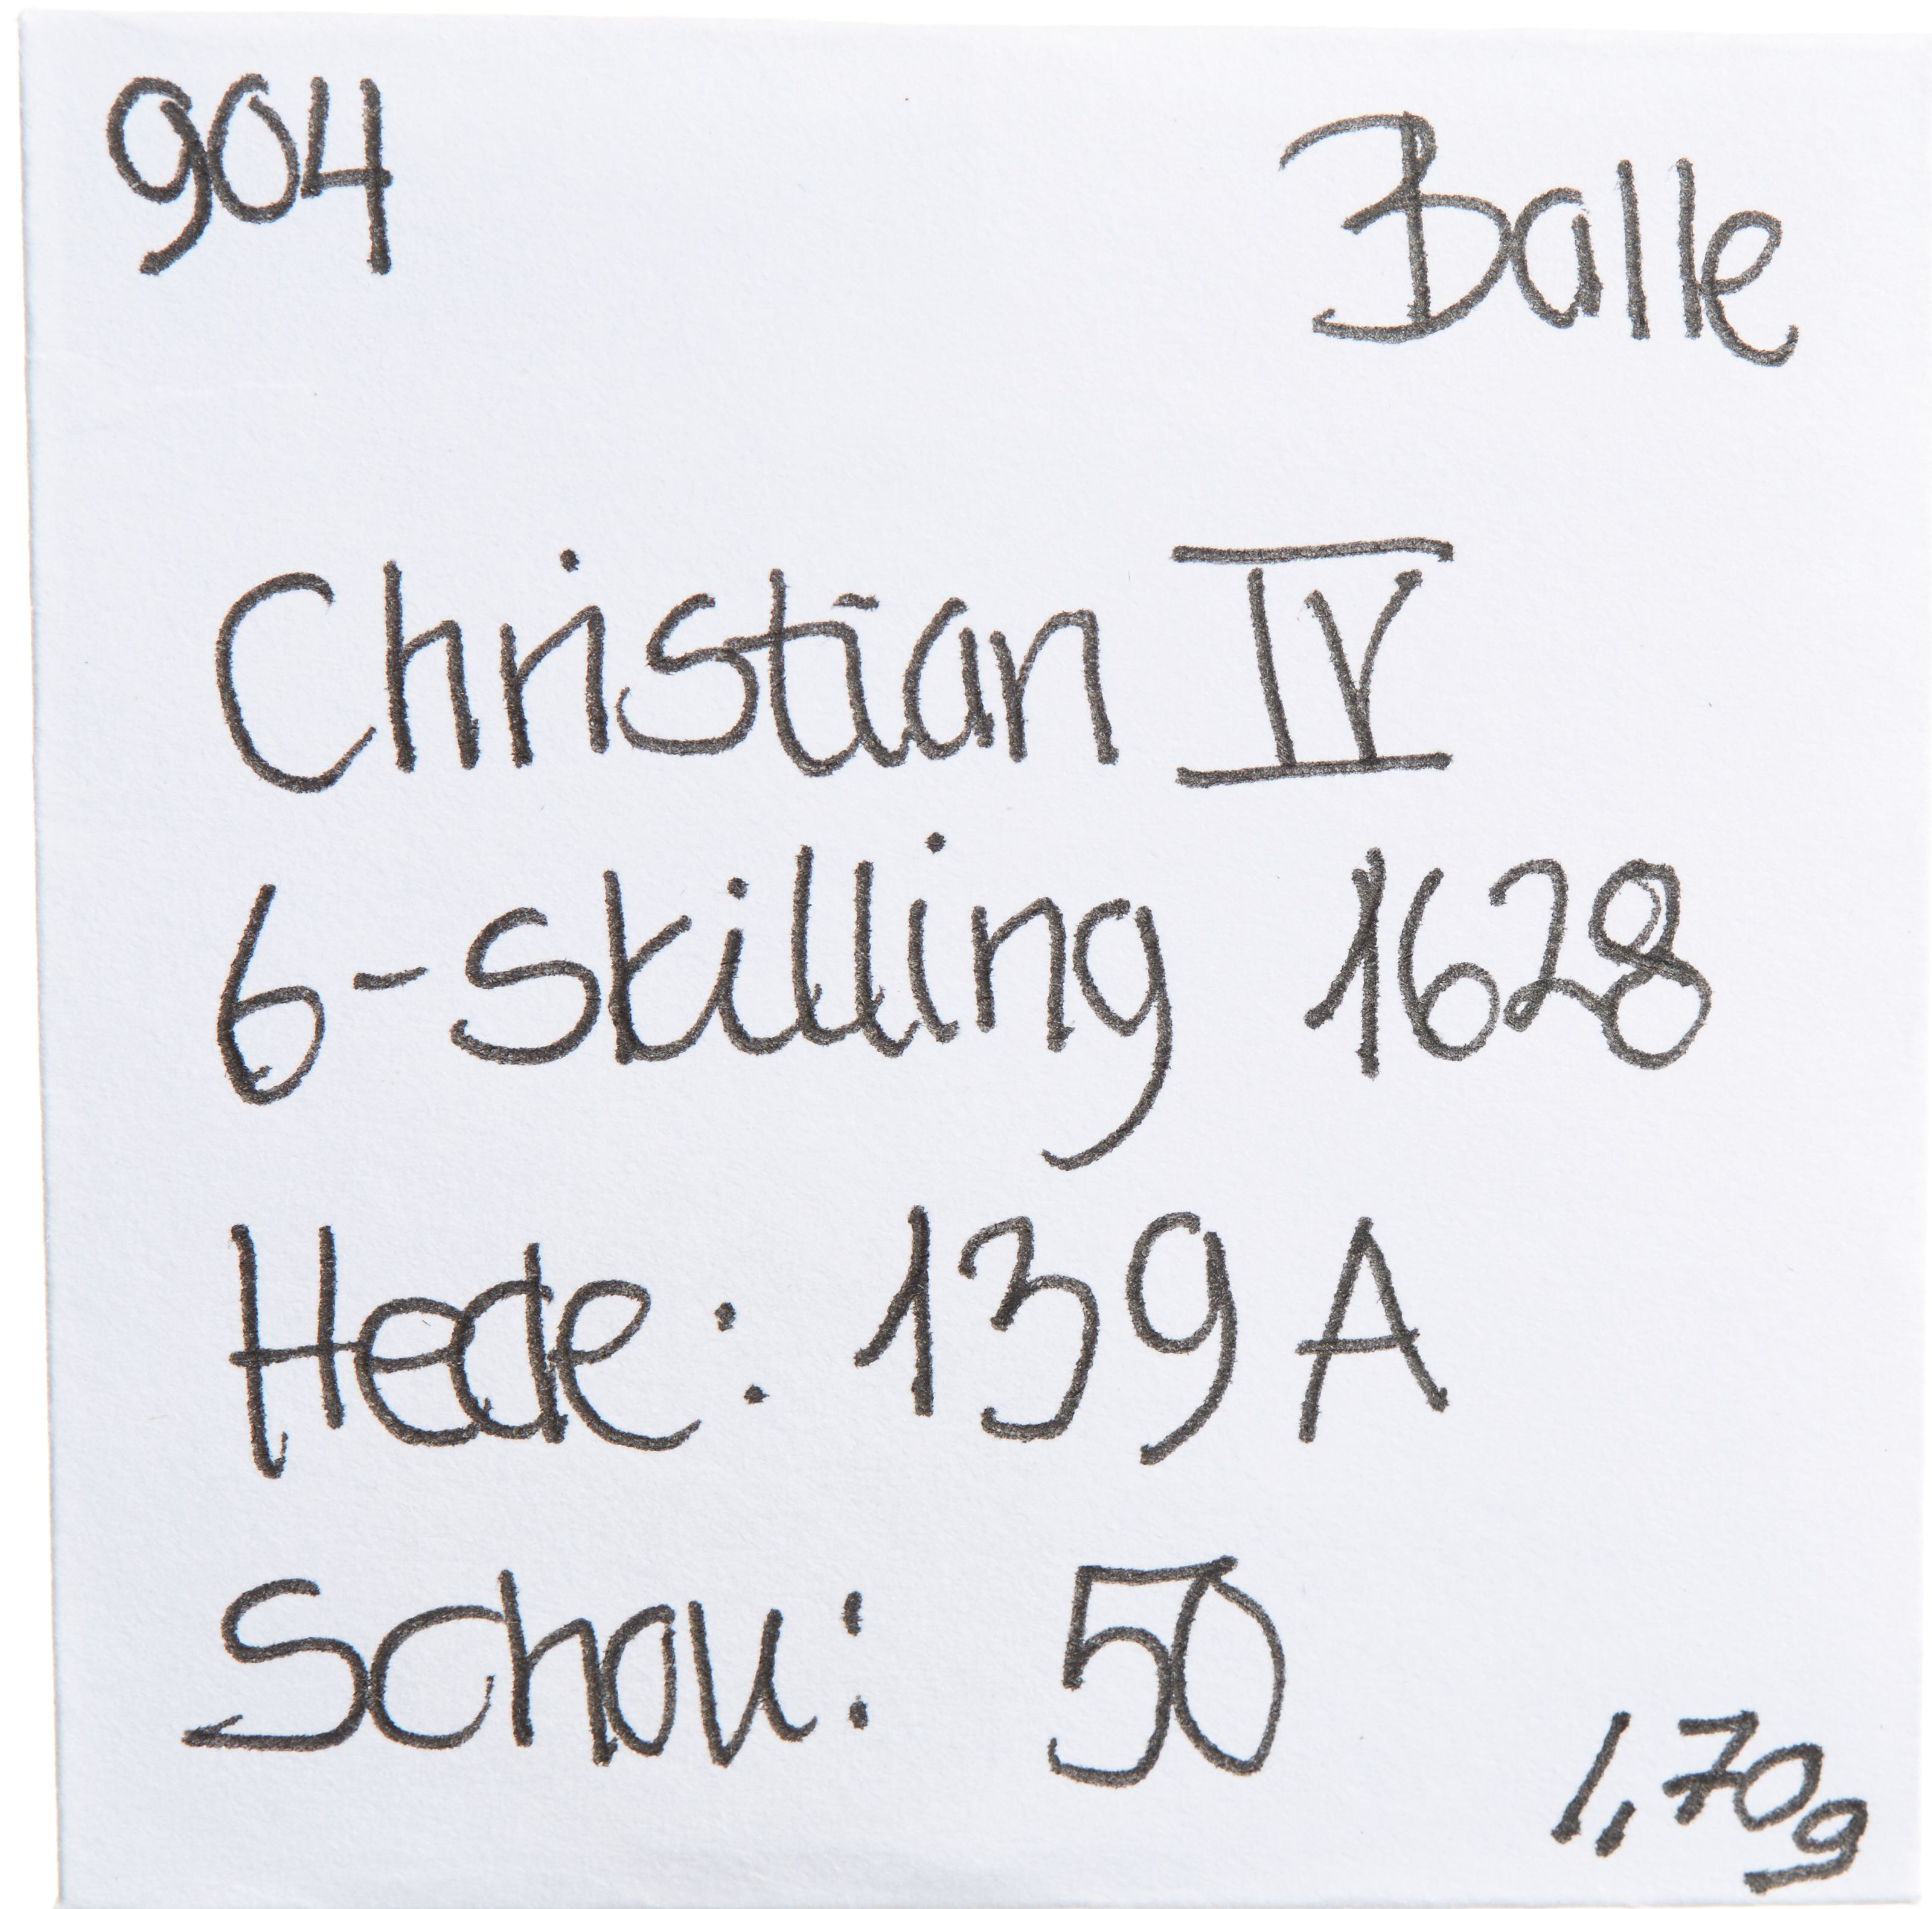 904 Balle
Christian IV
6-Skilling 1628
Hede: 139 A
Schou: 50
1,70g